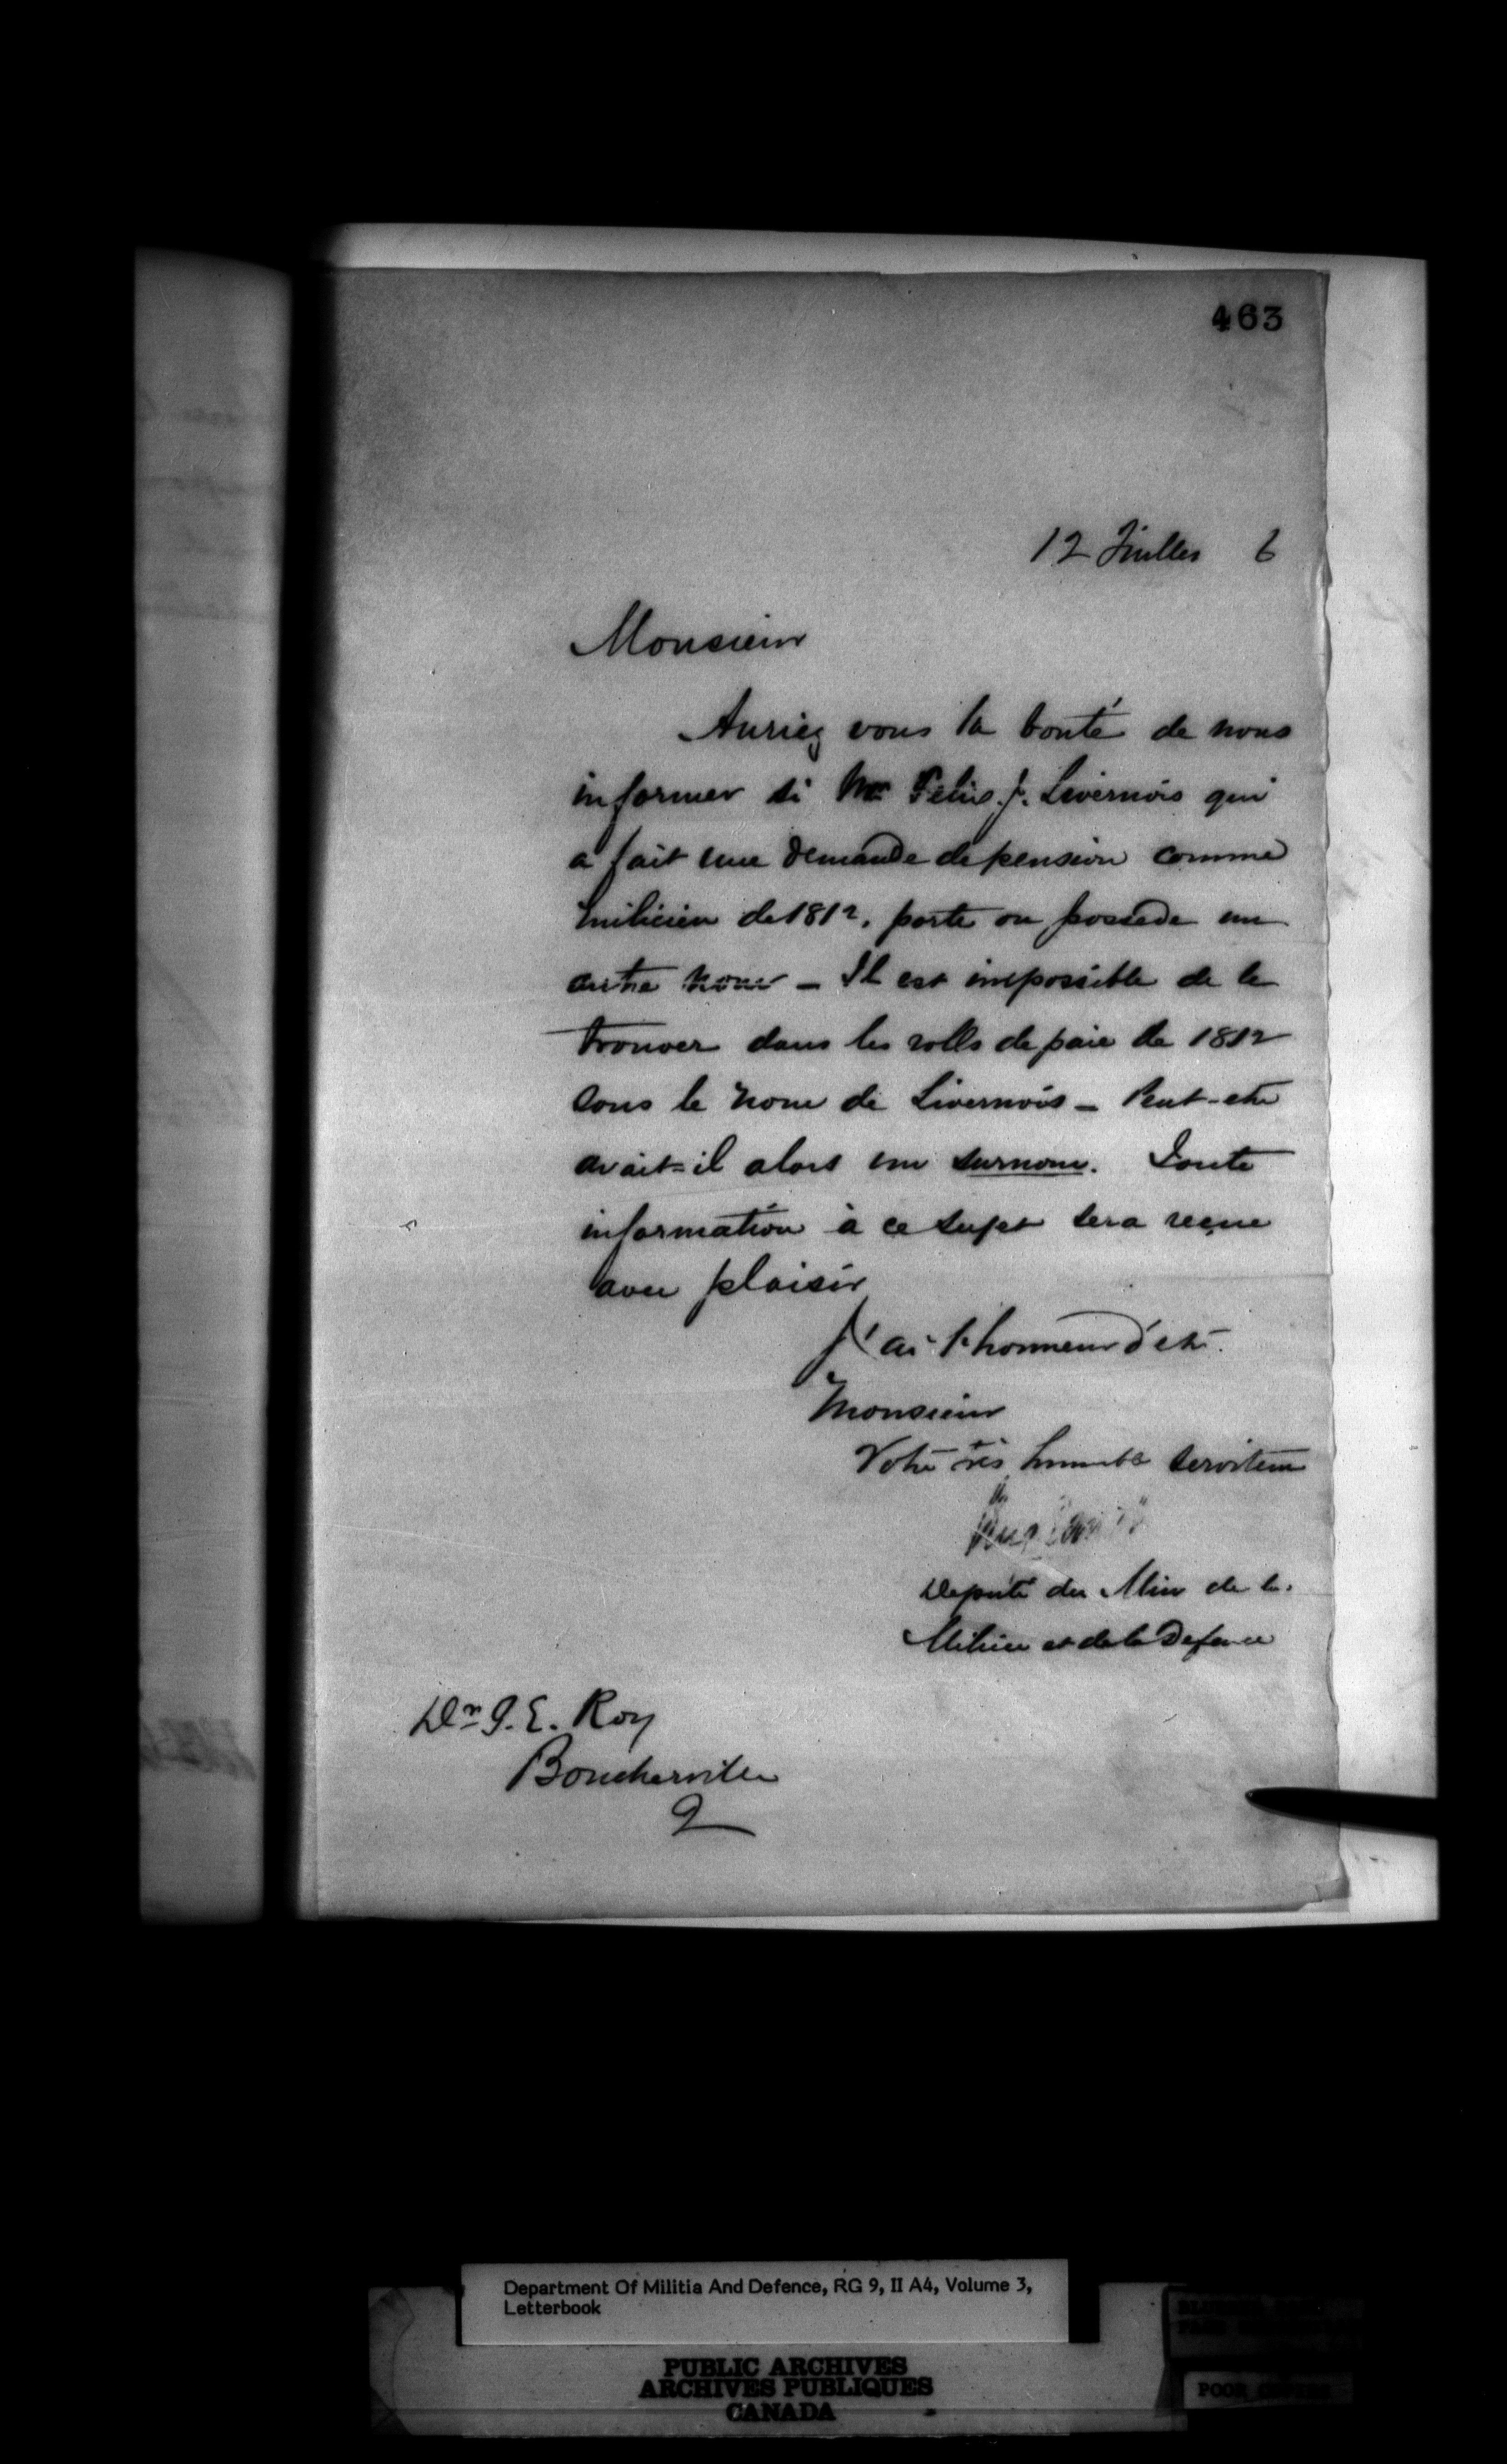 463
12 Juillet 6
Monsieur
Auriez vous la bonté de nous
informer si Mr Felix J. Livernois qui
a fait une demande de pension comme
milicien de 1812, porte ou possede un
autre nom – Il est impossible de le
trouver dans les rolls de paie de 1812
sous le nom de Livernois – Peut-etre
avait-il alors un surnom. Toute
information à ce sujet sera reçue
avec plaisir
J'ai l'honneur d'etre
Monsieur
Votre très humble serviteur
Deputé du Min de la
Milice et de la Defence
Dr J. E. Roy
Boucherville
Q
Department Of Militia And Defence, RG 9, II A4, Volume 3,
Letterbook
PUBLIC ARCHIVES
ARCHIVES PUBLIQUES
CANADA
POOR